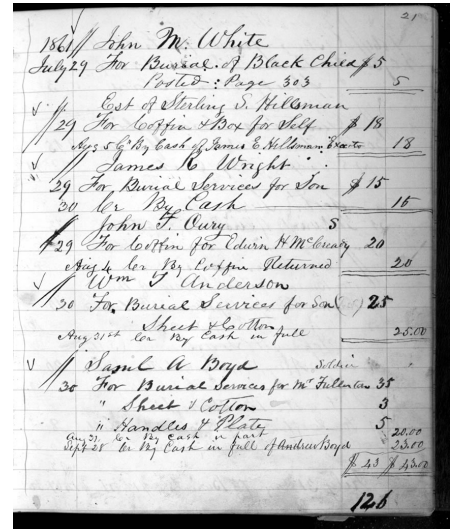 21
1861 // John M. White
July 29 For Burial of Black Child $ 5
Posted : Page 303 5
√ // Est of Sterling S. Hillsman
29 For Coffin & Box for Self $ 18
Aug 5 Cr By Cash of James E. Hillsman Exectr 18
√ // James R Wright
29 For Burial Services for Son $ 15
30 Cr By Cash 15
John T. Cury S
29 For Coffin for Edwin H McCreary 20
Aug 4 Cr By Coffin Returned 20
√ // Wm T Anderson
30 For Burial Services for Son 25
Sheet & Cotton
Aug 31st Cr By Cash in full 25.00
√ // Saml A Boyd Soldier
30 For Burial Services for Mr Fullerton 35
" Sheet & Cotton 3
" Handles & Plate 5
Aug 31 Cr By Cash in part 20.00
Sept 28 Cr By Cash in full of Andrew Boyd 23.00
$ 43 $ 43.00
126